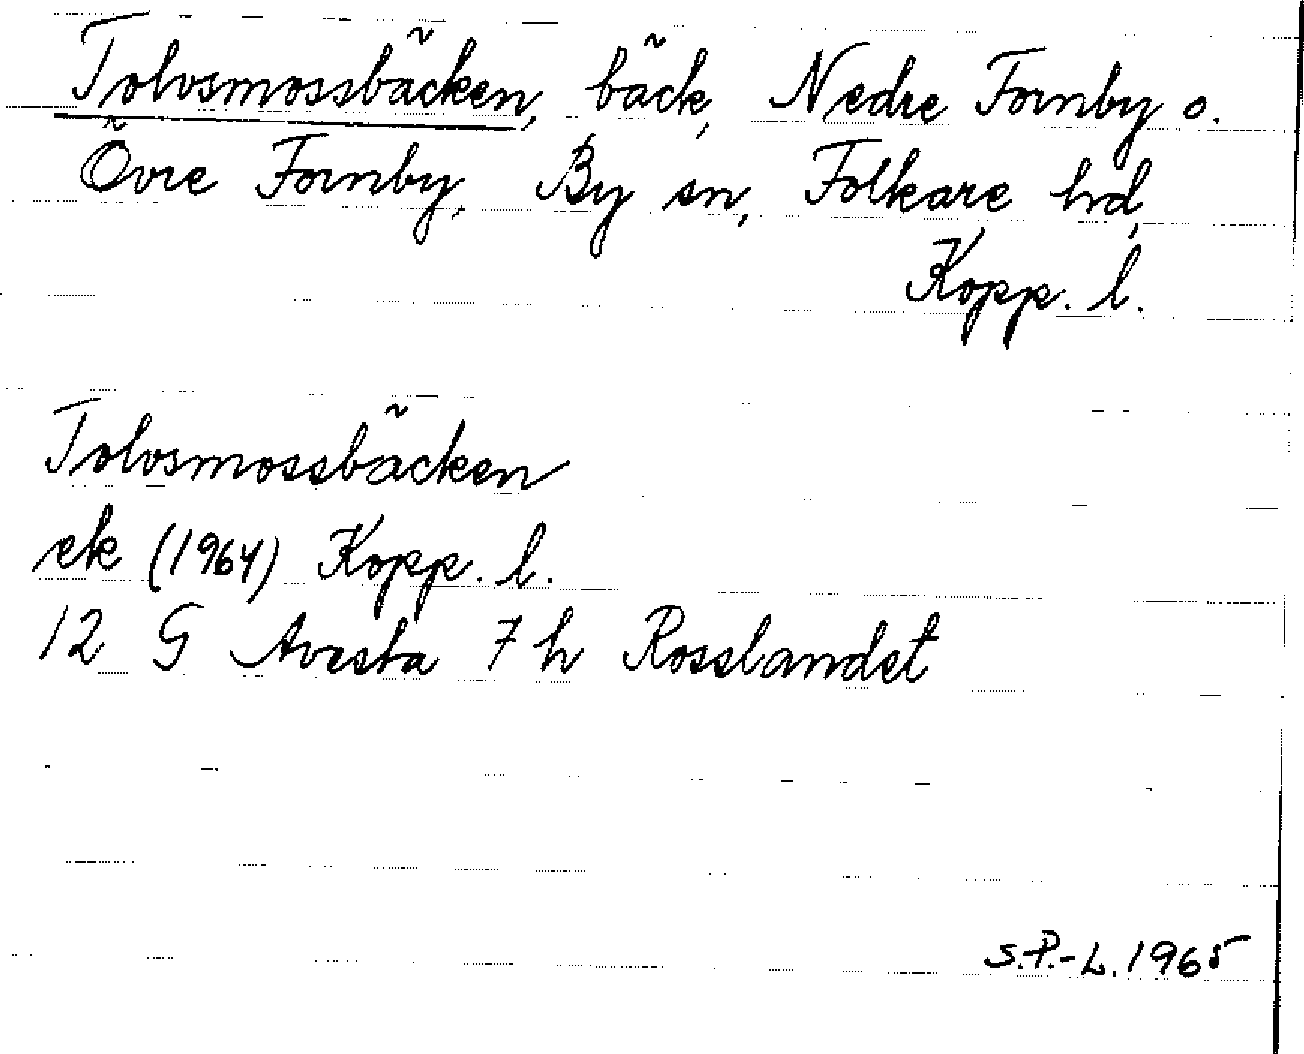 Tolvsmossbäcken, bäck, Nedre Fornby o.
Övre Fornby, By sn, Folkare hd,
Kopp. l.
Tolvsmossbäcken
ek (1964) Kopp. l.
12 G Avesta 7 h Rosslandet
S.P.-L. 1965